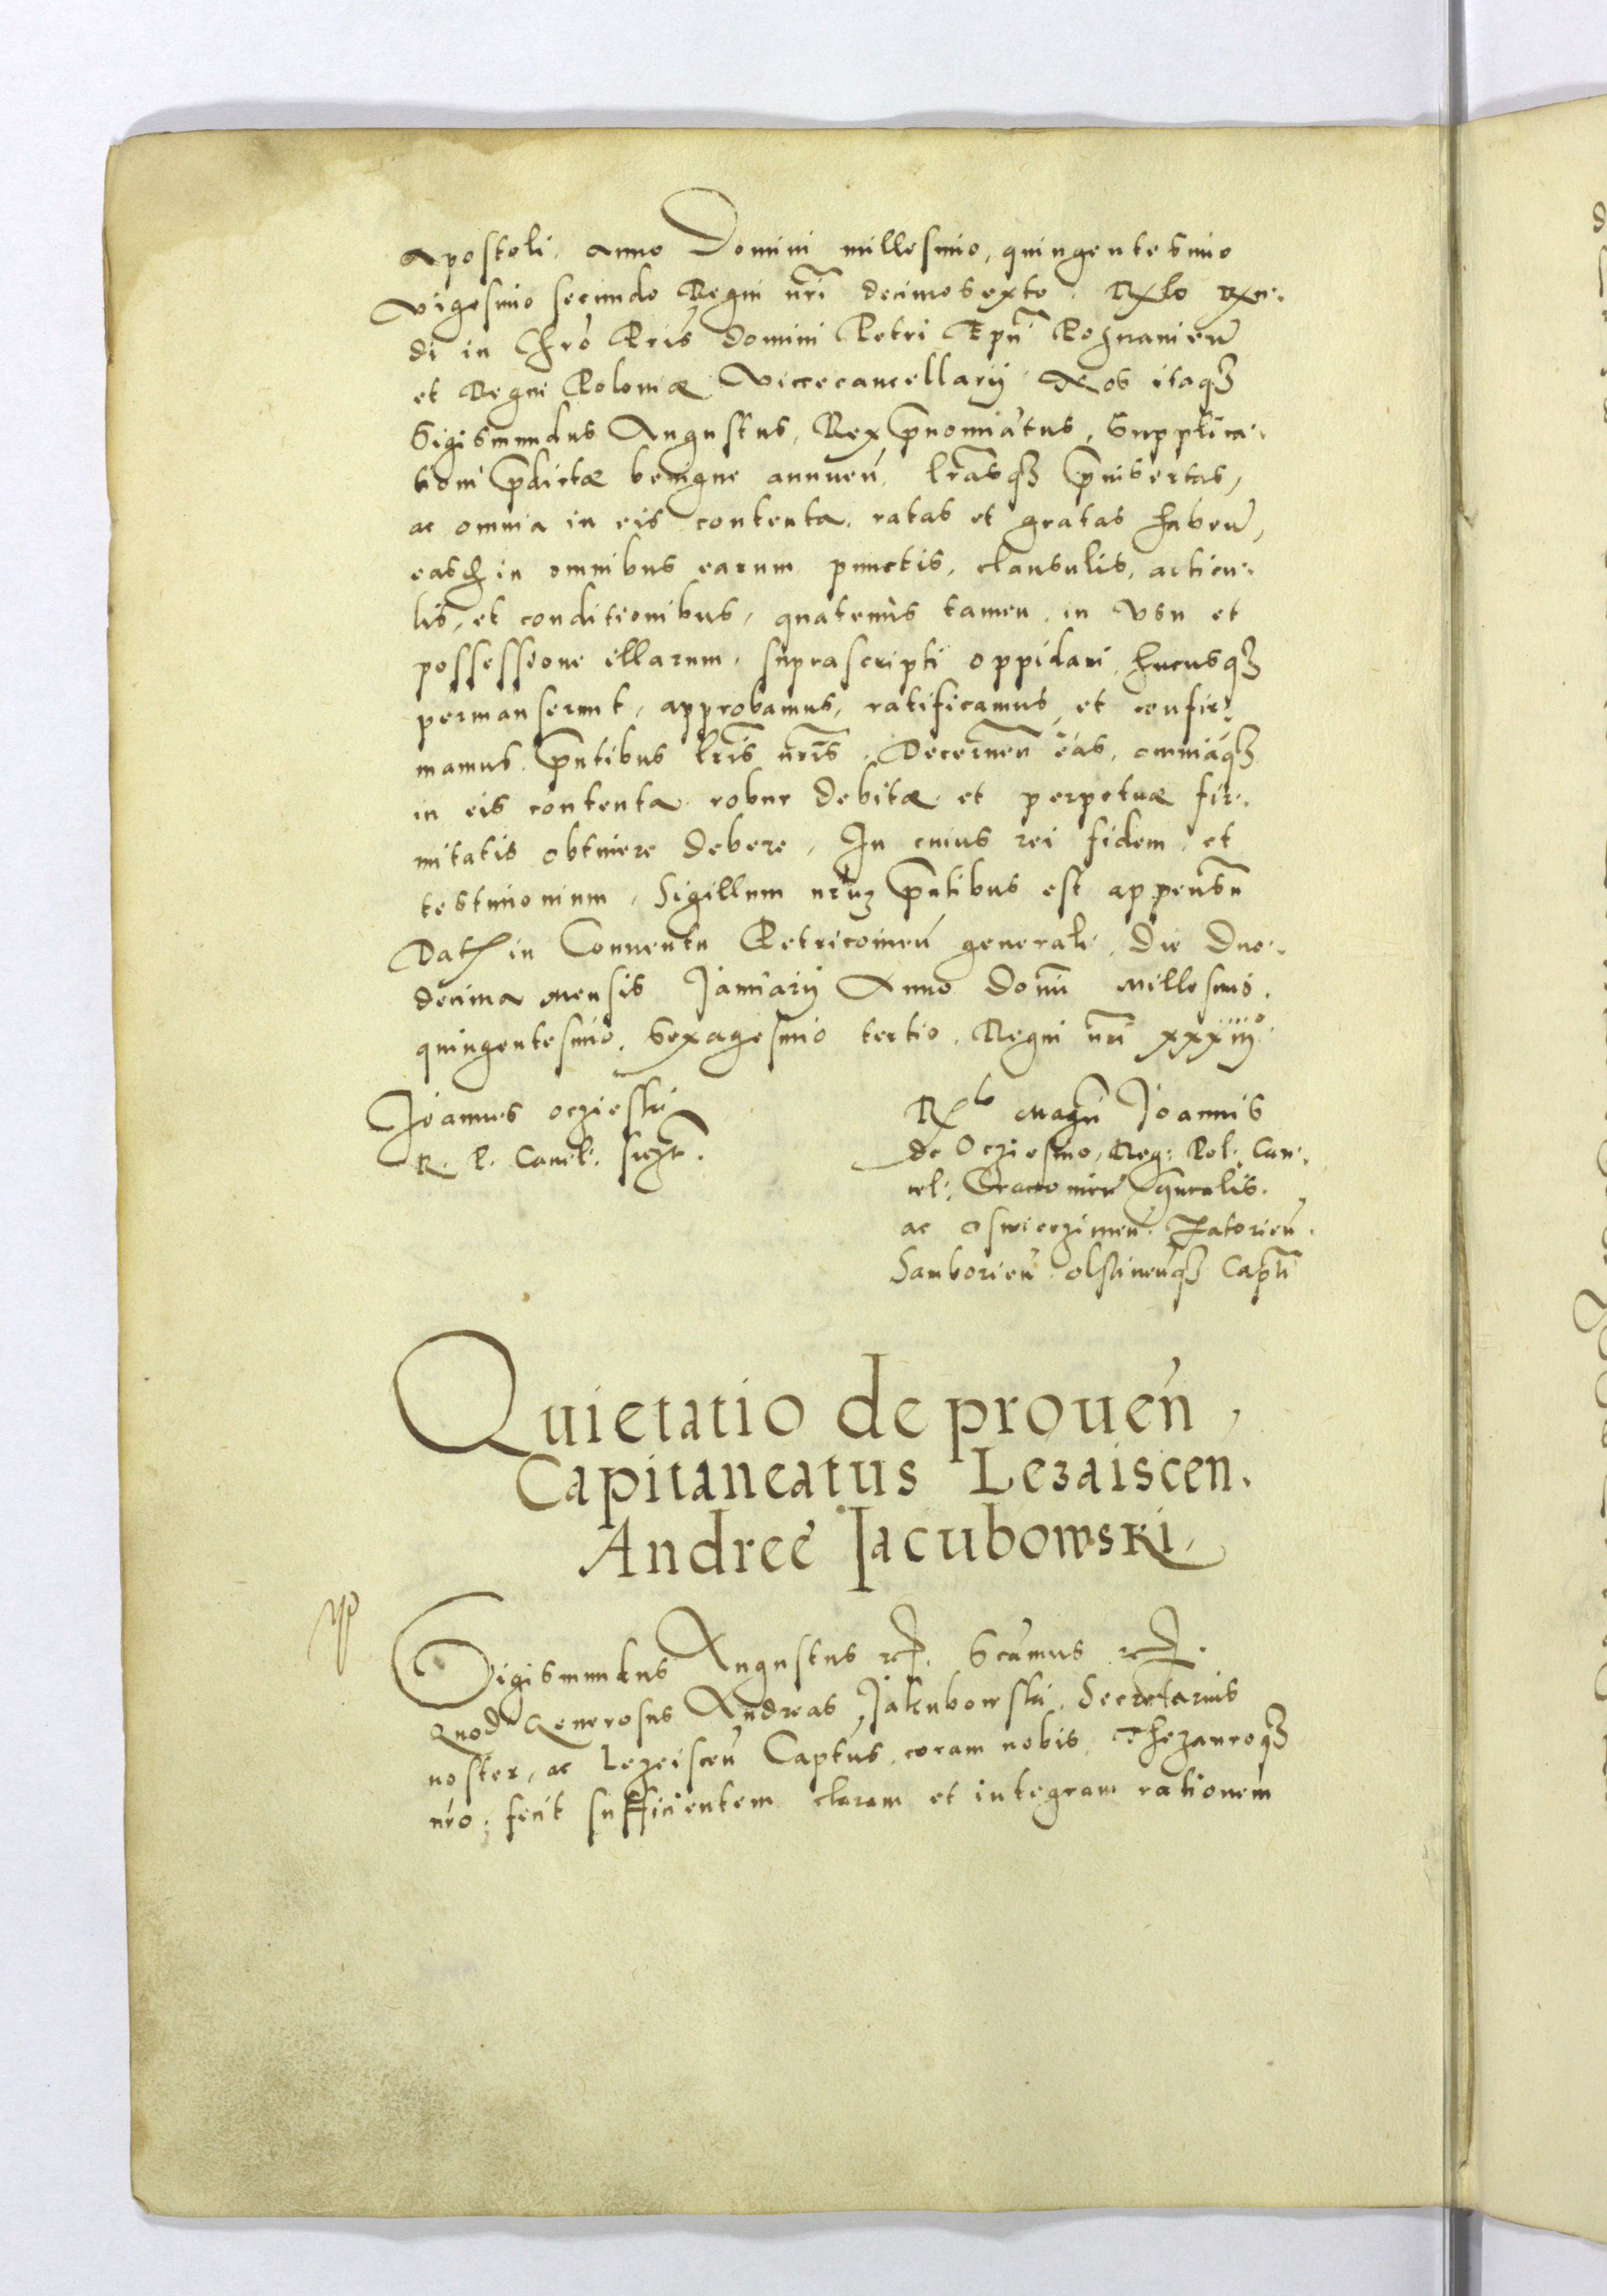 Apostoli, Anno Domini millesimo, quingentesimo
vigesimo secundo Regni nr̃i decimosexto. Rx̃lo Rx̃n-
di in Chrõ Pr̃is domini Petri Ep̃i Poznanieñ
et Regni Poloniæ Vicecancellarij. Nos itaqꝫ
Sigismundus Augustus, Rex p̃nomiãtus, Supplica-
tioni p̃dictæ benigne annueñ, lr̃asqꝫ p̃nisertas,
ac omnia in eis contenta, ratas et gratas habeñ,
easqꝫ in omnibus earum punctis, clausulis, articu-
lis, et conditionibus, quatenus tamen in vsu et
possessione illarum, suprascripti oppidani hucusqꝫ
permanserunt, approbamus, ratificamus et confir-
mamus p̃ntibus lr̃is nr̃is, Decerneñ eas, omniaqꝫ
in eis contenta robur debitæ et perpetuæ fir-
mitatis obtinere debere, In cuius rei fidem et
testimonium, Sigillum nr̃uꝫ p̃ntibus est appensũ
Dat in Conuentu Petricouieñ generali, die duo-
decima mensis Januarij Anno Doñi Millesimo
quingentesimo, sexagesimo tertio, Regni nr̃i xxxiijº
Joannes oczieski
R. P. Cancel. subscr̃.
Rxᵗᵒ Mag̃ci Joannis
de Ocziesino, Reg: Pol: Can-
cel: Cracouieñ gñralis.
ac Oswieczimeñ. Zatorieñ.
Samborieñ. olstineñqꝫ Cap̃ti
Quietatio de proueñ
Capitaneatus Lezaiscen.
Andreę Jacubowski
Sigismundus Augustus rc. Sc̃amus rc.
Quod Generosus Andreas Jakubowski, Secretarius
noster, ac Lezeisceñ Captũs, coram nobis, Thezauroqꝫ
nr̃o, fecit sufficientem claram et integram rationem